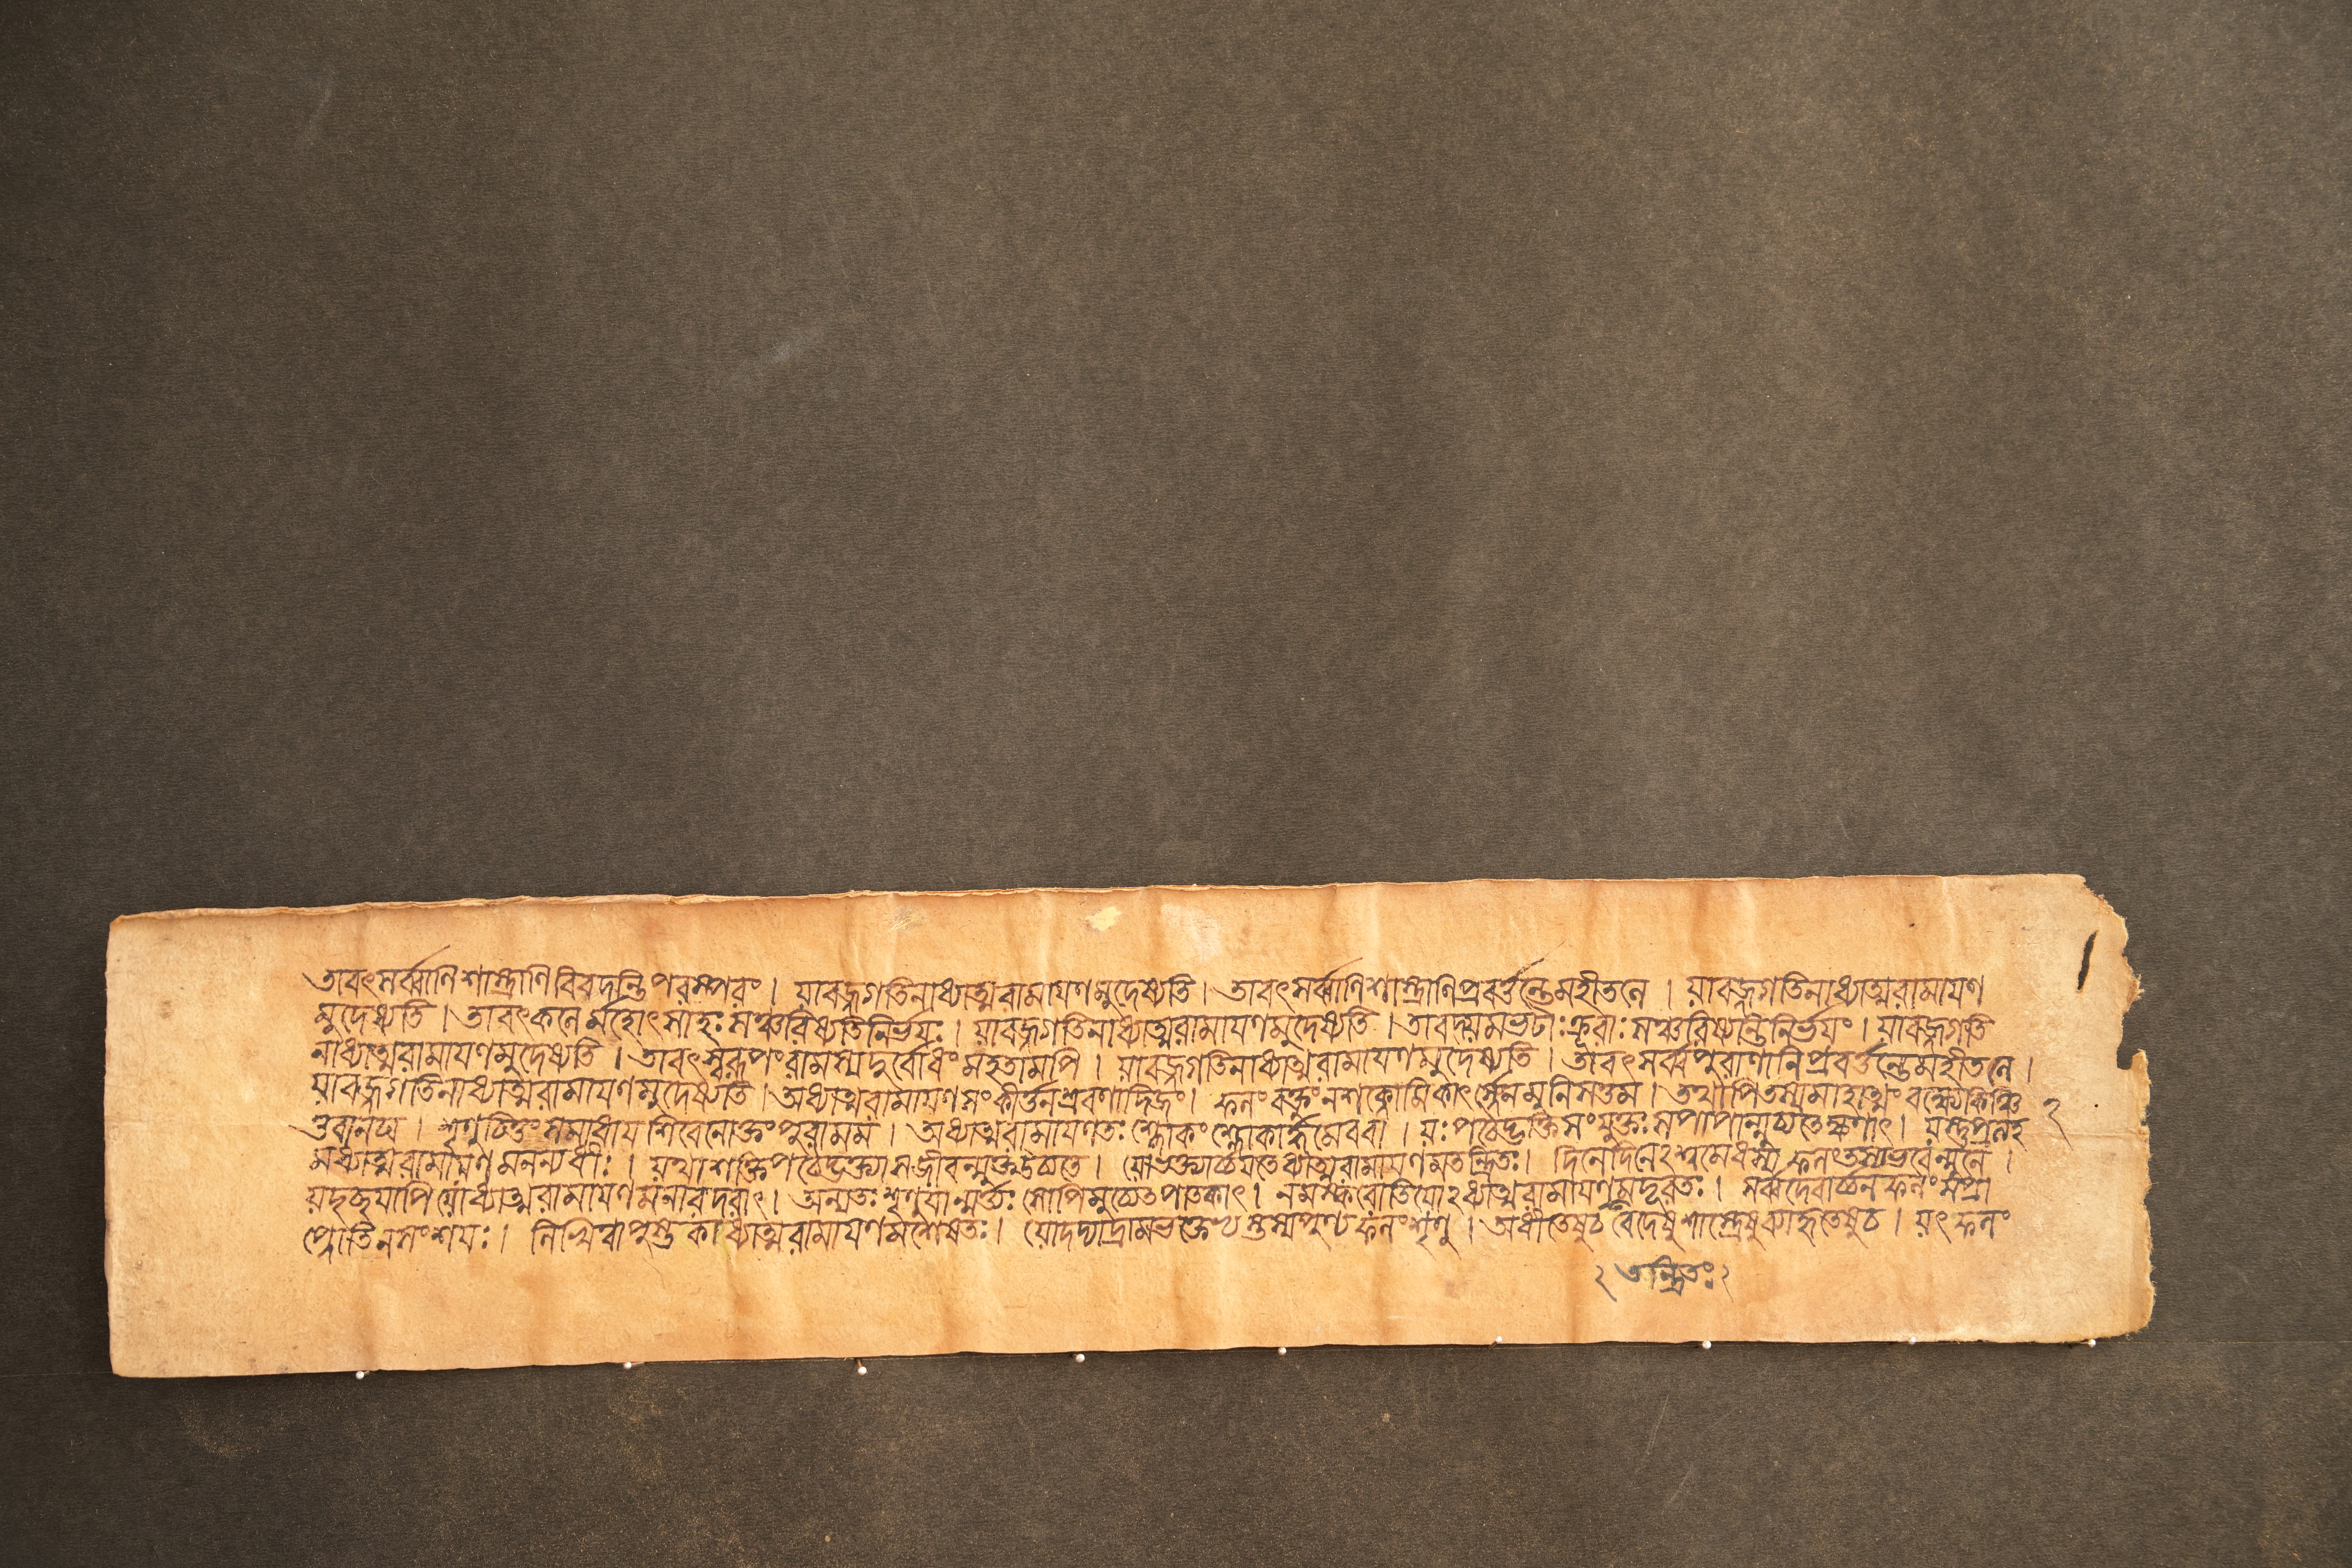 তাবৎসর্ব্বাণিশাস্ত্রাণিবিবদন্তিপরস্পরং । যাবজ্জগতিনাধ্যাত্মরামাযণমুদেষ্যতি । তাবৎসর্ব্বাণিশাস্ত্রাণিপ্রবর্ত্তন্তেমহীতলে । যাবজ্জগতিনাধ্যাত্মরামাযণ
মুদেষ্যতি । তাবৎকলের্মহোৎসাহঃসঞ্চরিষ্যতিনির্ভযঃ । যাবজ্জগতিনাধ্যাত্মরামাযণমুদেষ্যতি । তাবদ্যমভটাঃক্রূরাঃসঞ্চরিষ্যন্তিনির্ভযং । যাবজ্জগতি
নাধ্যাত্মরামাযণমুদেষ্যতি । তাবৎস্বরূপংরামস্যদুর্বোধংমহতামপি । যাবজ্জগতিনাধ্যাত্মরামাযণমুদেষ্যতি । তাবৎসর্ব্বপুরাণানিপ্রবর্ত্তন্তেমহীতলে ।
যাবজ্জগতিনাধ্যাত্মরামাযণমুদেষ্যতি । অধ্যাত্মরামাযণসংকীর্ত্তনশ্রবণাদিজং । ফলংবক্তুংনশক্নোমিকার্ৎস্নেনমুনিসত্তম । তথাপিতস্যমাহাত্ম্যংবক্ষ্যেকিঞ্চি
ত্তবানঘ । শৃণুচিত্তংসমাধাযশিবেনোক্তংপুরামম । অধ্যাত্মরামাযণতঃশ্লোকংশ্লোকার্দ্ধমেববা । যঃপঠেদ্ভক্তিসংযুক্তঃসপাপান্মুচ্যতেক্ষণাৎ । যস্তুপ্রত্যহ
মধ্যাত্মরামাযণমনন্যধীঃ । যথাশক্তিপঠেদ্ভক্ত্যাসজীবন্মুক্তউচ্যতে । যোভক্ত্যার্চ্চযতেধ্যাত্মরামাযণমতন্দ্রিতঃ । দিনেদিনেঽশ্বমেধস্যফলংতস্যভবেন্মুনে ।
যদৃচ্ছযাপিযোধ্যাত্মরামাযণমনাদরাৎ । অন্যতঃশৃণুযান্মর্ত্ত্যঃসোপিমুচ্যেতপাতকাৎ । নমস্করোতিযোঽধ্যাত্মরামাযণমদূরতঃ । সর্ব্বদেবার্চ্চনফলংসপ্রা
প্নোতিনসংশযঃ । লিখিত্বাপুস্তকাধ্যাত্মরামাযণমশেষতঃ । যোদদ্যাদ্রামভক্তেভ্যস্তস্যপুণ্যফলংশৃণু । অধীতেষুচবেদেষুশাস্ত্রেষুব্যাহৃতেষুচ । যৎফলং
২
২ তন্দ্রিতঃ ২